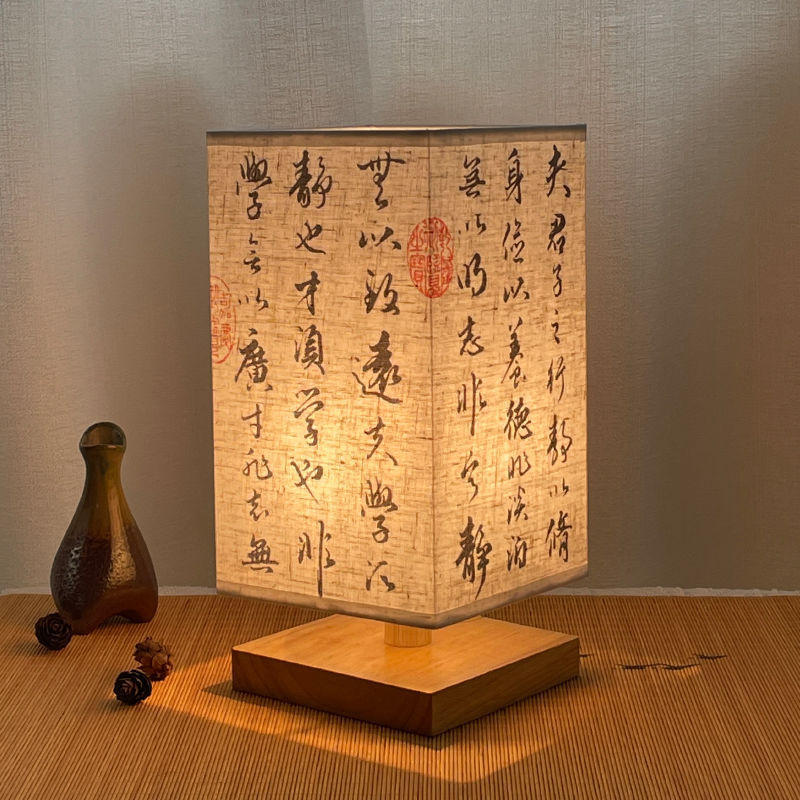 夫君子之行静以脩
身儉以養德非淡泊
無以明志非寧靜
無以致遠夫學須
靜也才須学也非
學無以廣才非志無